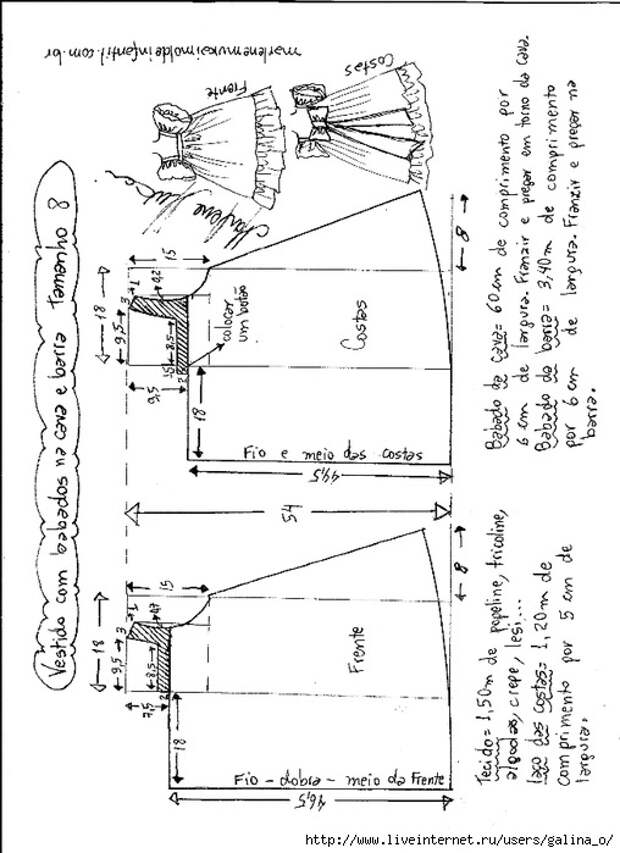 Vestido com babados na cava e barra Tamanho 8
marlenemukaimoldeinfantil.com.br
Frente
Costas
Marlene
Mukai
18
9,5
3
1
15
0,2
8,5
1,5
2
9,5
colocar
um botão
Costas
18
Fio e meio das costas
44,5
8
54
18
9,5
3
1
15
8,5
2
7,5
Frente
18
Fio - dobra - meio da Frente
46,5
8
Babado da cava= 60cm de comprimento por
6 cm de largura. Franzir e pregar em torno da cava.
Babado da barra= 3,40m de comprimento
por 6 cm de largura. Franzir e pregar na
barra.
Tecido= 1,50m de popeline, tricoline,
algodão, crepe, lesi...
laço das costas= 1,20m de
comprimento por 5 cm de
largura.
http://www.liveinternet.ru/users/galina_o/